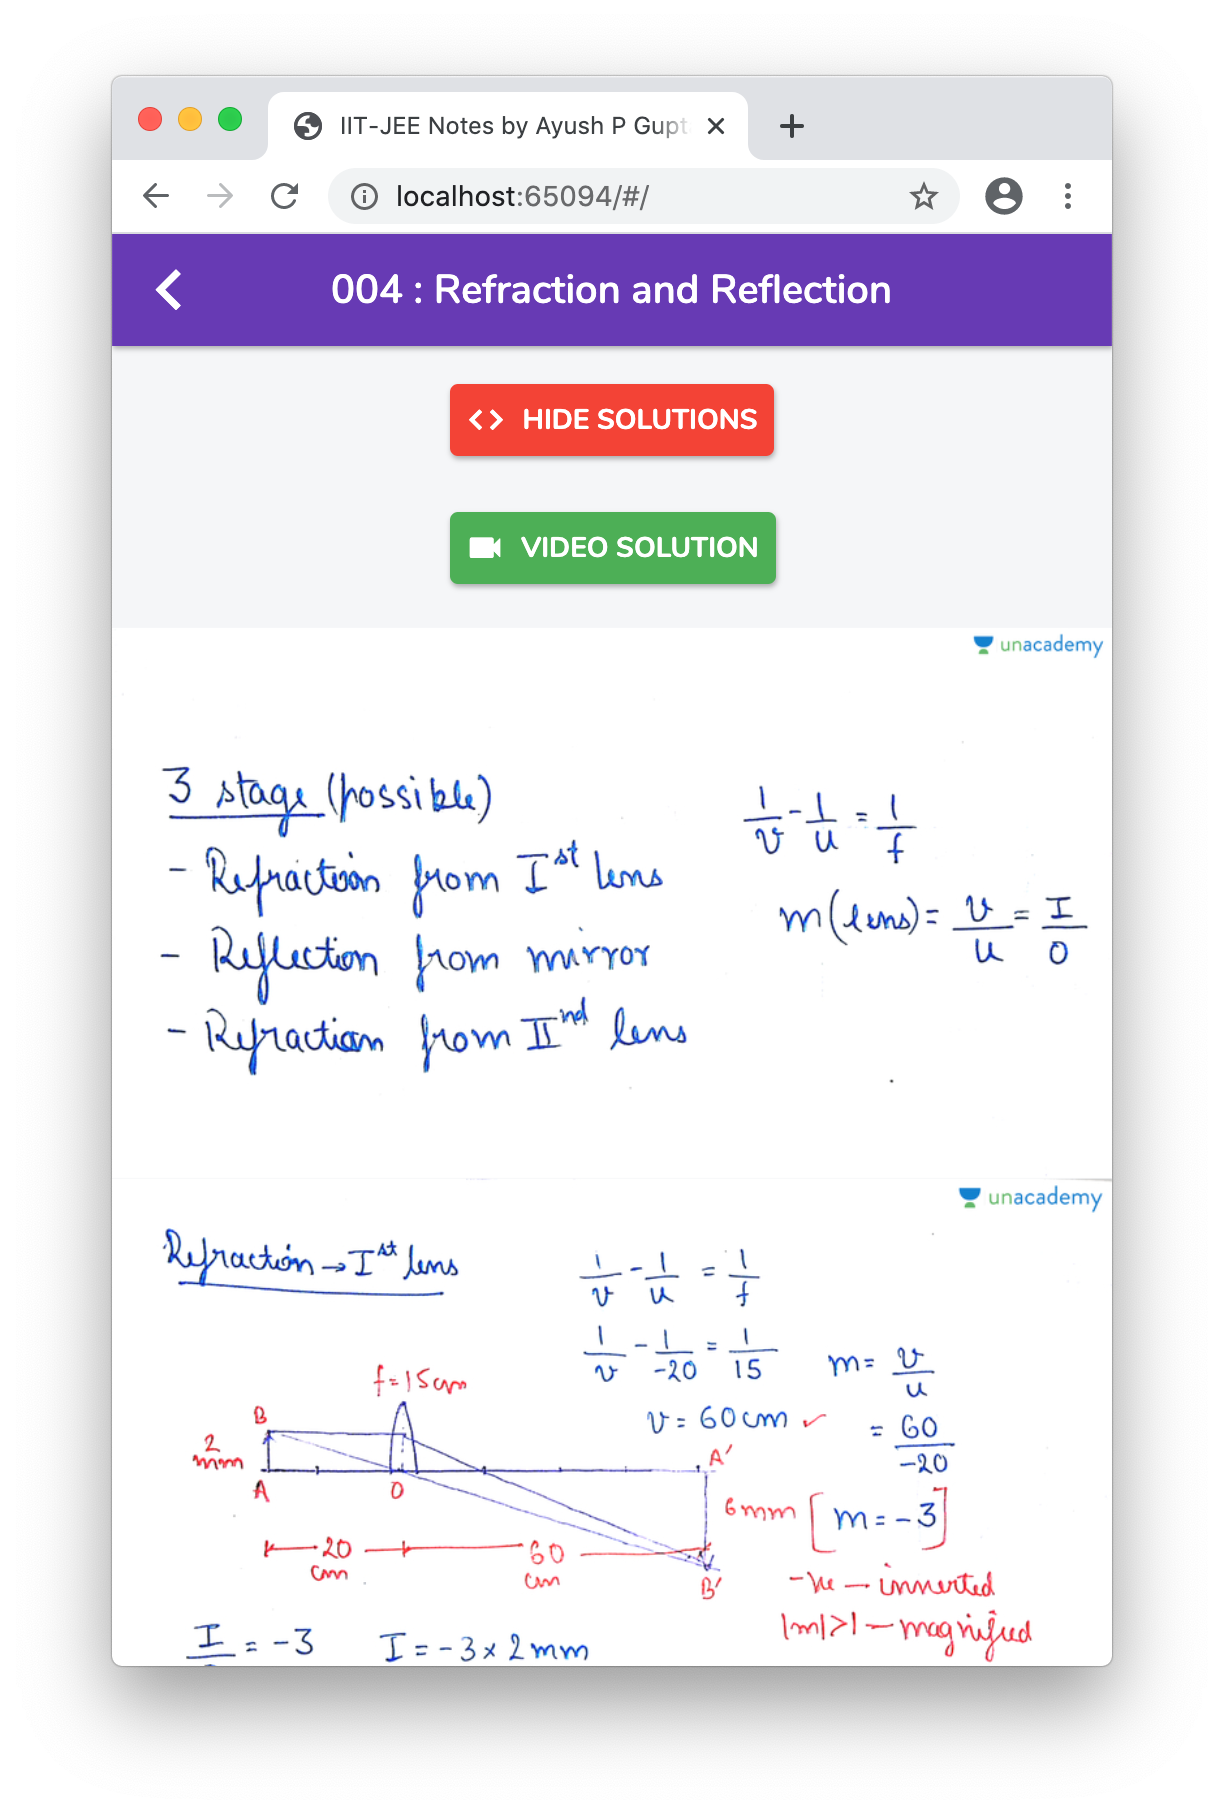 IIT-JEE Notes by Ayush P Gupt
localhost:65094/#/
004 : Refraction and Reflection
<> HIDE SOLUTIONS
VIDEO SOLUTION
unacademy
3 stage (possible)
- Refraction from Ist lens
- Reflection from mirror
- Refraction from IInd lens
1/v - 1/u = 1/f
m(lens) = v/u = I/O
unacademy
Refraction → Ist lens
1/v - 1/u = 1/f
1/v - 1/-20 = 1/15
v = 60 cm ✓
m = v/u
= 60/-20
[m = -3]
-ve — inverted
|m|>1 — magnified
f = 15cm
B
2 mm
A
O
A'
6mm
B'
20 cm
60 cm
I/ = -3
I = -3 x 2 mm